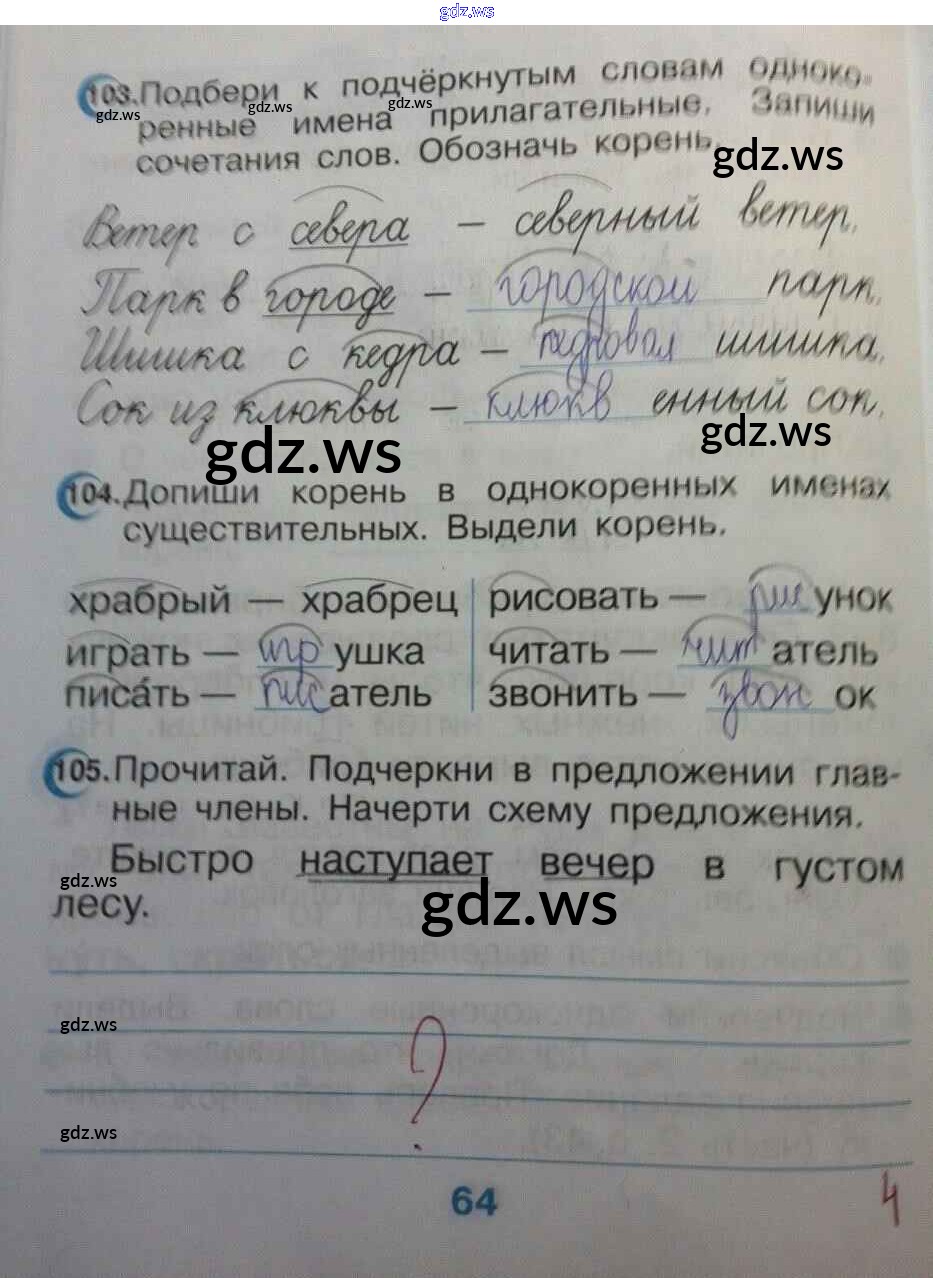 gdz.ws
103. Подбери к подчёркнутым словам одноко-
gdz.ws gdz.ws gdz.ws
ренные имена прилагательные. Запиши
сочетания слов. Обозначь корень.
gdz.ws
Ветер с севера – северный ветер.
Парк в городе – городской парк.
Шишка с кедра – кедровая шишка.
Сок из клюквы – клюквенный сок.
gdz.ws gdz.ws
104. Допиши корень в однокоренных именах
существительных. Выдели корень.
храбрый — храбрец рисовать — рисунок
играть — игрушка читать — читатель
писа́ть — писатель звонить — звонок
105. Прочитай. Подчеркни в предложении глав-
ные члены. Начерти схему предложения.
Быстро наступает вечер в густом
gdz.ws
лесу.
gdz.ws
gdz.ws
?
gdz.ws
64
4